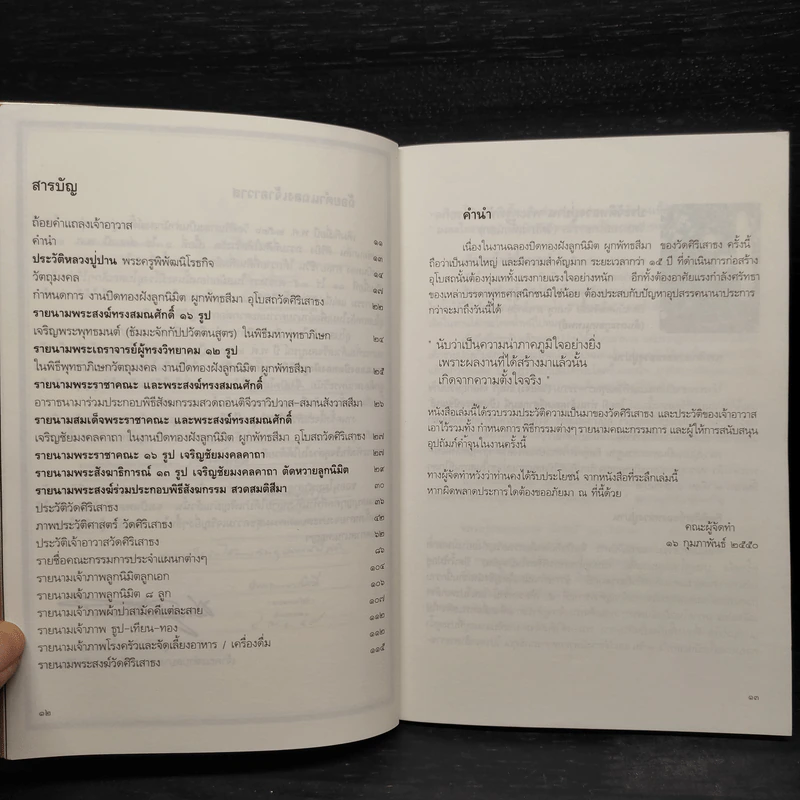 สารบัญ
ถ้อยคำแถลงเจ้าอาวาส ๑๑
คำนำ ๑๓
ประวัติหลวงปู่ปาน พระครูพิพัฒนิโรธกิจ ๑๔
วัตถุมงคล ๑๗
กำหนดการ งานปิดทองฝังลูกนิมิต ผูกพัทธสีมา อุโบสถวัดศิริเสาธง ๒๒
รายนามพระสงฆ์ทรงสมณศักดิ์ ๑๖ รูป
เจริญพระพุทธมนต์ (ธัมมะจักกัปปวัตตนสูตร) ในพิธีมหาพุทธาภิเษก ๒๔
รายนามพระเถราจารย์ผู้ทรงวิทยาคม ๑๒ รูป
ในพิธีพุทธาภิเกวัตถุมงคล งานปิดทองฝังลูกนิมิต ผูกพัทธสีมา ๒๕
รายนามพระราชาคณะ และพระสงฆ์ทรงสมณศักดิ์
อาราธนามาร่วมประกอบพิธีสังฆกรรมสวดถอนติจีวราวิปวาส-สมานสังวาสสีมา ๒๖
รายนามสมเด็จพระราชาคณะ และพระสงฆ์ทรงสมณศักดิ์
เจริญชัยมงคลคาถา ในงานปิดทองฝังลูกนิมิต ผูกพัทธสีมา อุโบสถวัดศิริเสาธง ๒๗
รายนามพระราชาคณะ ๑๖ รูป เจริญชัยมงคลคาถา ๒๗
รายนามพระสังฆาธิการณ์ ๑๓ รูป เจริญชัยมงคลคาถา ตัดหวายลูกนิมิต ๒๙
รายนามพระสงฆ์ร่วมประกอบพิธีสังฆกรรม สวดสมติสีมา ๓๐
ประวัติวัดศิริเสาธง ๓๖
ภาพประวัติศาสตร์ วัดศิริเสาธง ๔๒
ประวัติเจ้าอาวาสวัดศิริเสาธง ๖๒
รายชื่อคณะกรรมการประจำแผนกต่างๆ ๘๖
รายนามเจ้าภาพลูกนิมิตลูกเอก ๑๐๔
รายนามเจ้าภาพลูกนิมิต ๘ ลูก ๑๐๖
รายนามเจ้าภาพผ้าป่าสามัคคีแต่ละสาย ๑๐๗
รายนามเจ้าภาพ ธูป-เทียน-ทอง ๑๑๒
รายนามเจ้าภาพโรงครัวและจัดเลี้ยงอาหาร / เครื่องดื่ม ๑๑๒
รายนามพระสงฆ์วัดศิริเสาธง ๑๑๕
๑๒
คำนำ
เนื่องในงานฉลองปิดทองฝังลูกนิมิต ผูกพัทธสีมา ของวัดศิริเสาธง ครั้งนี้
ถือว่าเป็นงานใหญ่ และมีความสำคัญมาก ระยะเวลากว่า ๑๕ ปี ที่ดำเนินการก่อสร้าง
อุโบสถนั้นต้องทุ่มเททั้งแรงกายแรงใจอย่างหนัก อีกทั้งต้องอาศัยแรงกำลังศรัทธา
ของเหล่าบรรดาพุทธศาสนิกชนมิใช่น้อย ต้องประสบกับปัญหาอุปสรรคนานาประการ
กว่าจะมาถึงวันนี้ได้
" นับว่าเป็นความน่าภาคภูมิใจอย่างยิ่ง
เพราะผลงานที่ได้สร้างมาแล้วนั้น
เกิดจากความตั้งใจจริง "
หนังสือเล่มนี้ได้รวบรวมประวัติความเป็นมาของวัดศิริเสาธง และประวัติของเจ้าอาวาส
เอาไว้รวมทั้ง กำหนดการ พิธีกรรมต่างๆ รายนามคณะกรรมการ และผู้ให้การสนับสนุน
อุปถัมภ์ค้ำจุนในงานครั้งนี้
ทางผู้จัดทำหวังว่าท่านคงได้รับประโยชน์ จากหนังสือที่ระลึกเล่มนี้
หากผิดพลาดประการใดต้องขออภัยมา ณ ที่นี้ด้วย
คณะผู้จัดทำ
๑๖ กุมภาพันธ์ ๒๕๕๐
๑๓